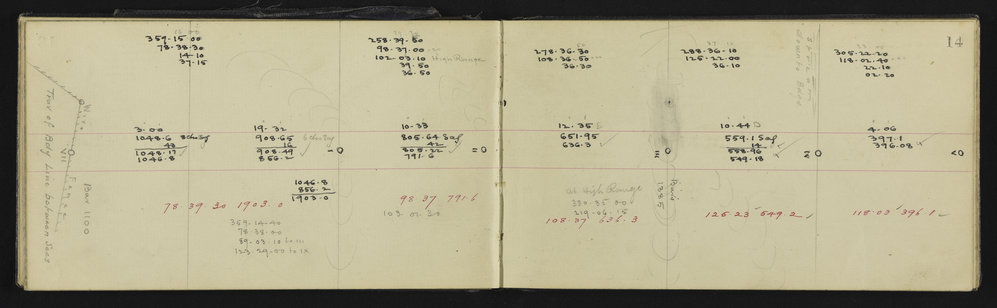 359.15.00
78.38.30
14.10
37.15
258.39.50
98.37.00
102.03.10 High Range
39.50
36.50
278.36.30
108.36.50
36.30
288.36.10
125.22.00
36.10
305.22.20
118.02.40
22.10
02.20
14
3.00
1048.6
43
1048.17
1046.8
19.32
908.65
16
908.49
856.2
= 0
10.33
805.64 Sag
42
805.22
791.6
= 0
12.35
651.95
636.3
= 0
10.44
559.1 Sag
14
558.96
549.18
= 0
4.06
397.1
396.08
< 0
1046.8
856.2
1903.0
78 39 30 1903.0
98 37 791.6
103.02.30
359.14.40
78.38.00
89.03.10 to III
123.29.00 to IX
at High Range
330.35.00
219.06.15
108.37 636.3
125 23 549.2
118.03 396.1
Wire Fence
VIII
Bar 1100
Trav of Bdy Line between Secs